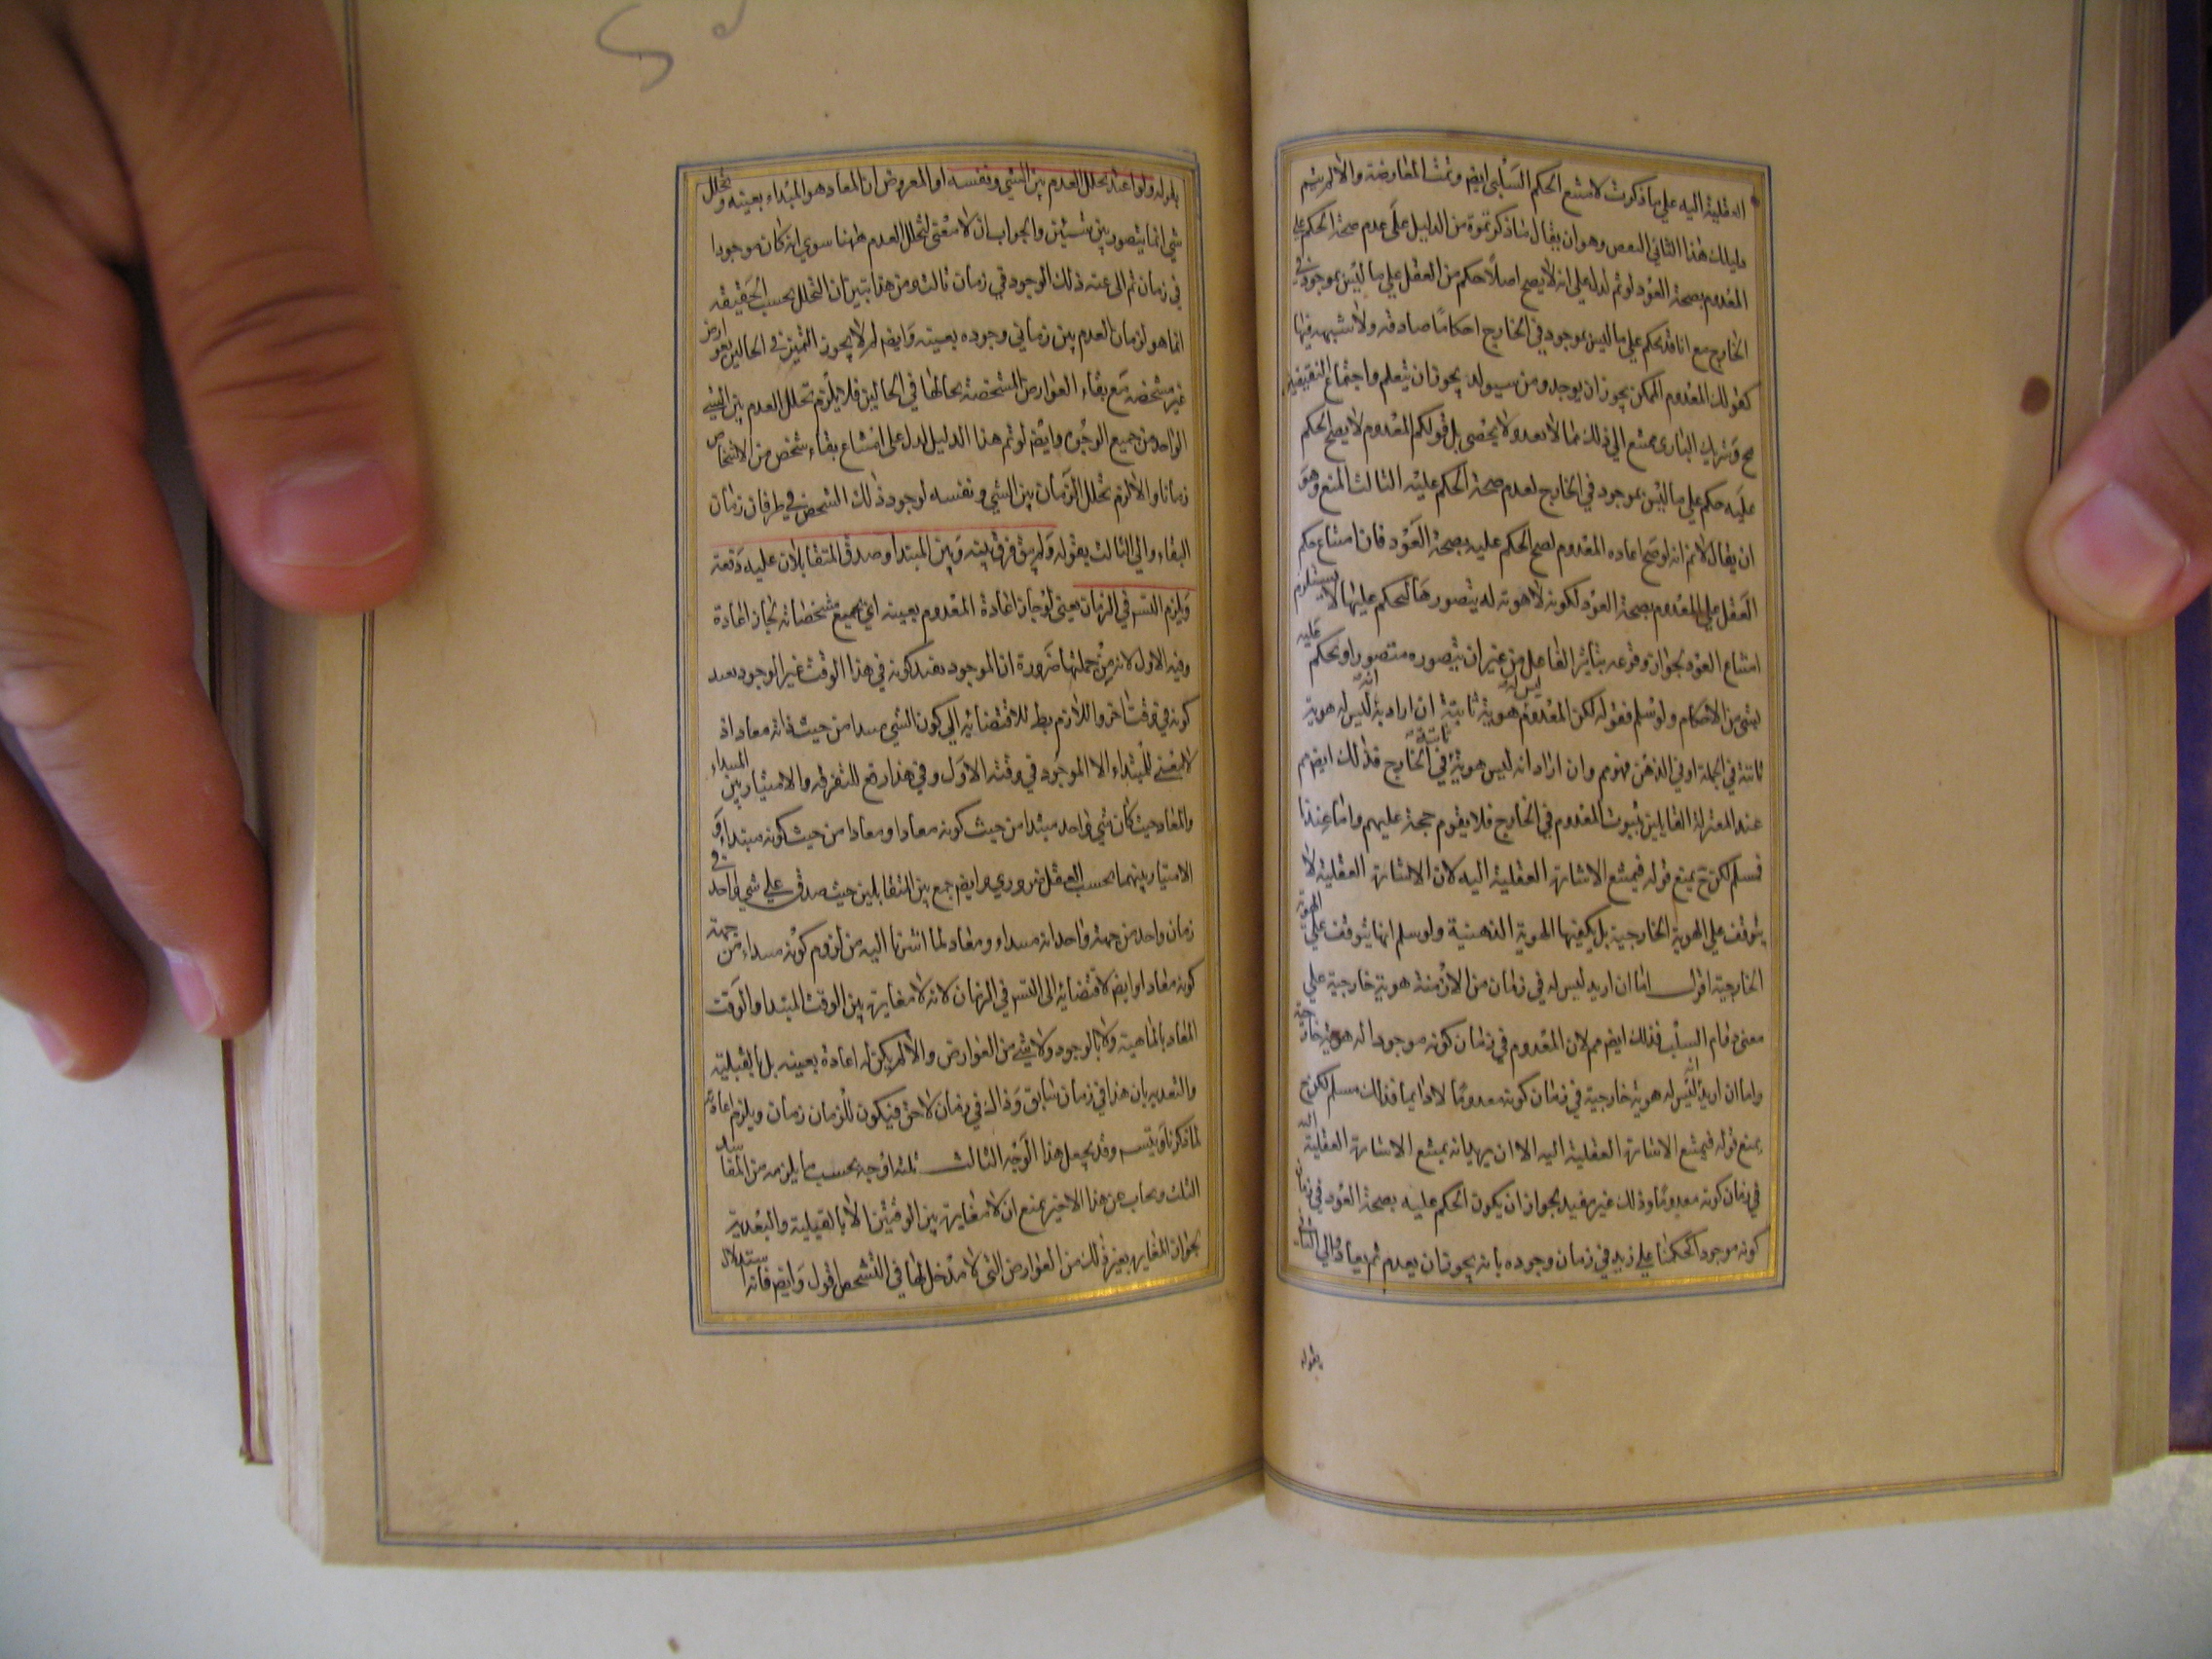 العقلية اليه على ما ذكرت لامتنع الحكم السلبى ايضو وتمت المعارضة والا لم يتم
دليلك هذا الثانى النقض وهو ان يقال ما ذكرتموه من الدليل على عدم صحة الحكم على
المعدوم بصحة العود لو تم لدل على انه لا يصح اصلا حكم من العقل على ما ليس بموجود فى
الخارج مع انا قد نحكم على ما ليس بموجود فى الخارج احكاما صادقه ولا شبهة فيها
كقولك المعدوم الممكن يجوز ان يوجد ومن سيولد يجوز ان يتعلم واجتماع النقيضين
مح وشريك البارى ممتنع الى ذلك مما لا يعد ولا يحصى بل قولكم المعدوم لا يصح الحكم
عليه حكم على ما ليس بموجود فى الخارج لعدم صحة الحكم عليه الثالث المنع وهو
ان يقال لا نم انه لو صح اعاده المعدوم لصح الحكم عليه بصحة العود فان امتناع حكم
العقل على المعدوم بصحة العود لكونه لا هوية له يتصورها لحكم عليها لا يستلزم
امتناع العود لجواز وقوعه بتأثير الفاعل من غير ان يتصوره متصور او نحكم عليه
بشئ من الاحكام ولو سلم فقوله لكن المعدوم ليس له هوية ثابتة ان اراد به انه ليس له هوية
ثابتة فى الجملة او فى الذهن فهو مم وان اراد انه ليس هوية ثابتة فى الخارج فذلك ايضو مم
عند المعتزلة القايلين بثبوت المعدوم فى الخارج فلا يقوم حجة عليهم واما عندنا
فسلم لكن ح يمنع قوله فيمتنع الاشارة العقلية اليه لان الاشارة العقلية لا
يتوقف على الهوية الخارجية بل يكفيها الهوية الذهنية ولو سلم انها يتوقف على الهوية
الخارجية اقول اما ان اريد ليس له فى زمان من الازمنة هوية خارجية على
معنى دوام السلب فذلك ايضو مم لان المعدوم فى زمان كونه موجودا له هوية خارجية
واما ان اريد انه ليس له هوية خارجية فى زمان كونه معدوما لا دايما فذلك مسلم لكن ح
يمنع قوله فيمتنع الاشارة العقلية اليه الا ان يريد انه يمتنع الاشارة العقلية اليه
فى زمان كونه معدوما وذلك غير مفيد لجواز ان يكون الحكم عليه بصحة العود فى زمان
كونه موجودا كحكمنا على زيد فى زمان وجوده بانه يجوز ان يعدم ثم يعاد والى الثانى
بقوله
بقوله ولو اعيد تخلل العدم بين الشئ ونفسه اذ المفروض ان المعاد هو المبتداء بعينه وتخلل
شئ انما يتصور بين شيئين والجواب ان لا معنى لتخلل العدم هاهنا سوى انه كان موجودا
فى زمان ثم زال عنه ذلك الوجود فى زمان ثالث ومن هذا تبين ان التخلل بحسب الحقيقه
انما هو لزمان العدم بين زمانى وجوده بعينه وايضو لم لا يجوز التميز فى الحالين بعوارض
غير مشخصه مع بقاء العوارض المشخصة بحالها فى الحالين فلا يلزم تخلل العدم بين الشئ
الواحد من جميع الوجوه وايضو لو تم هذا الدليل لدل على امتناع بقاء شخص من الاشخاص
زمانا والا لزم تخلل الزمان بين الشئ ونفسه لوجود ذلك الشخص فى طرفى زمان
البقاء والى الثالث بقوله ولم يبق فرق بينه وبين المبتدا وصدق المتقابلان عليه دفعة
ويلزم التسم فى الزمان يعنى لو جاز اعادة المعدوم بعينه اى بجميع مشخصاته لجاز اعادة
وقته الاول لانه من جملتها ضرورة ان الموجود بقيد كونه فى هذا الوقت غير الموجود بقيد
كونه فى وقت اخر واللازم بط للافتضائه الى كون الشئ مبتدا من حيث انه معاد اذ
لا معنى للمبتداء الا الموجود فى وقته الاول وفى هذا رفع للتفرقه والامتياز بين المبتداء
والمعاد حيث كان شئ واحد مبتدا من حيث كونه معادا ومعادا من حيث كونه مبتداء و
الامتياز بينهما بحسب العقل ضرورى وايضو جمع بين المتقابلين حيث صدق على شئ واحد فى
زمان واحد من جهة واحدة انه مبتداء ومعاد لما اشرنا اليه من لزوم كونه مبتداء من جهة
كونه معادا وايضو لافتضائه الى التسم فى الزمان لانه لا مغايرة بين الوقت المبتدا والوقت
المعاد بالماهية ولا بالوجود ولا بشئ من العوارض والا لم يكن له اعادة بعينه بل بالقبلية
والبعديه بان هذا فى زمان سابق وذاك فى زمان لاحق فيكون للزمان زمان ويلزم اعادته
لما ذكرنا ويتسم وقد يجعل هذا الوجه الثالث ثلثة اوجه بحسب ما يلزمه من المفاسد
الثلث ويجاب عن هذا الاخير بمنع ان لا مغايرة بين الوقتين الا بالقبلية والبعدية
بجواز المغايره بغير ذلك من العوارض التى لا مدخل لها فى التشخص اقول وايضو فانه استدلال